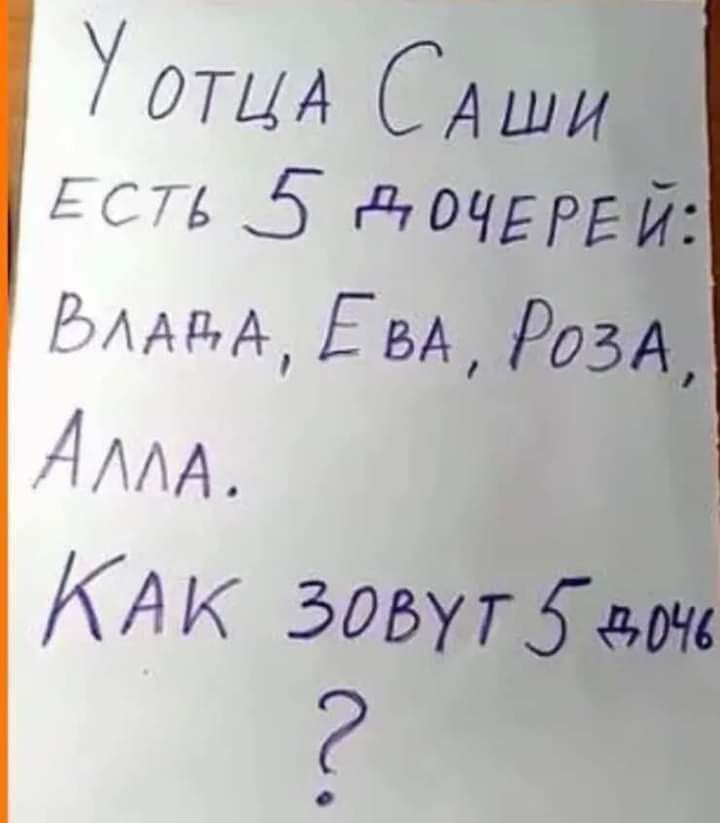 У отца Саши
есть 5 дочерей:
Влада, Ева, Роза,
Алла.
Как зовут 5 дочь
?